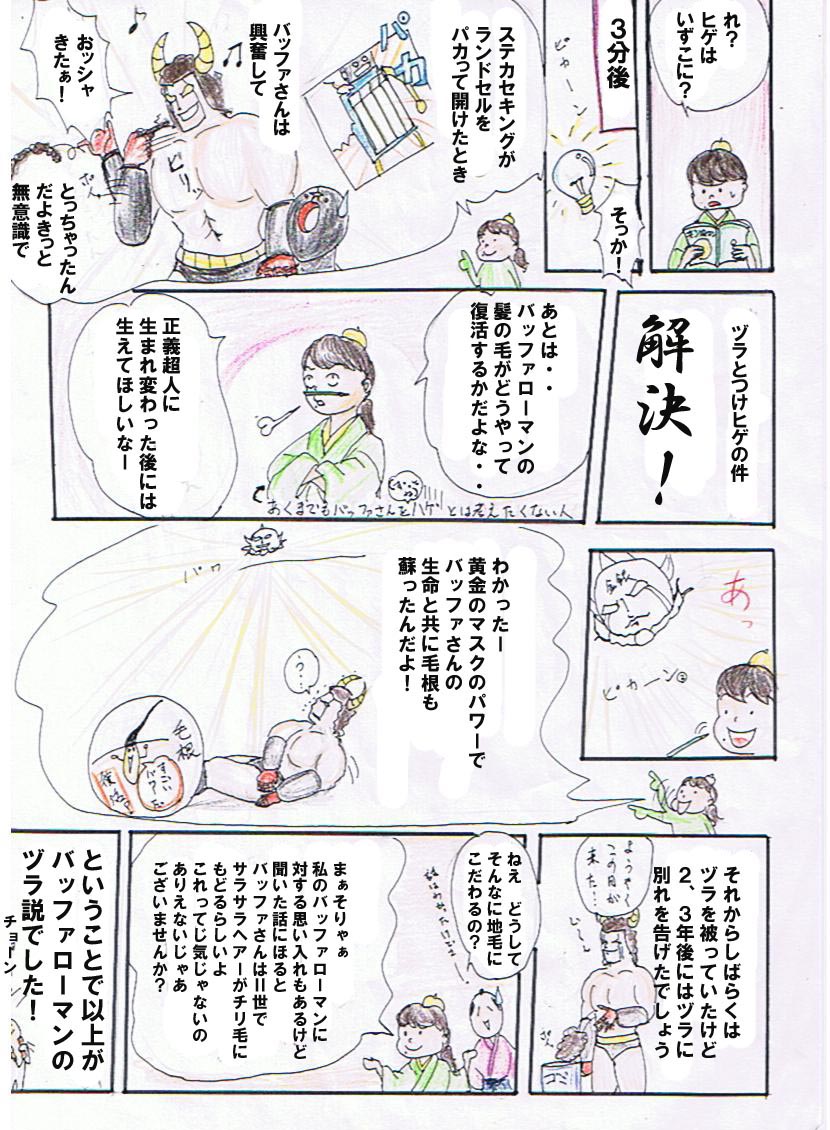 れ？
ヒゲは
いずこに？
３分後
ピカーン
そっか！
ステカセキングが
ランドセルを
パカって開けたとき
パカ
バッファさんは
興奮して
おッシャ
きたぁ！
ビリッ
とっちゃったん
だよきっと
無意識で
ヅラとつけヒゲの件
解決！
あとは・・
バッファローマンの
髪の毛がどうやって
復活するかだよな・・
正義超人に
生まれ変わった後には
生えてほしいなー
あくまでもバッファさんをハゲとは考えたくない人
あっ
ピカーン②
わかったー
黄金のマスクのパワーで
バッファさんの
生命と共に毛根も
蘇ったんだよ！
パワ
う…？
毛根
すごい
パワーだ
復活！
それからしばらくは
ヅラを被っていたけど
２、３年後にはヅラに
別れを告げたでしょう
ようやく
この日が
来た！
ゴミ
ねえ　どうして
そんなに地毛に
こだわるの？
まぁそりゃぁ
私のバッファローマンに
対する思い入れもあるけど
聞いた話にほると
バッファさんはⅡ世で
サラサラヘアーがチリ毛に
もどるらしいよ
これってじ気じゃないの
ありえないじゃあ
ございませんか？
ということで以上が
バッファローマンの
ヅラ説でした！
チョーン